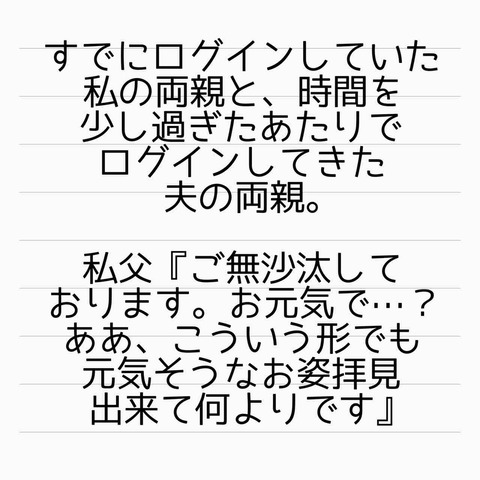 すでにログインしていた
私の両親と、時間を
少し過ぎたあたりで
ログインしてきた
夫の両親。
私父『ご無沙汰して
おります。お元気で…？
ああ、こういう形でも
元気そうなお姿拝見
出来て何よりです』